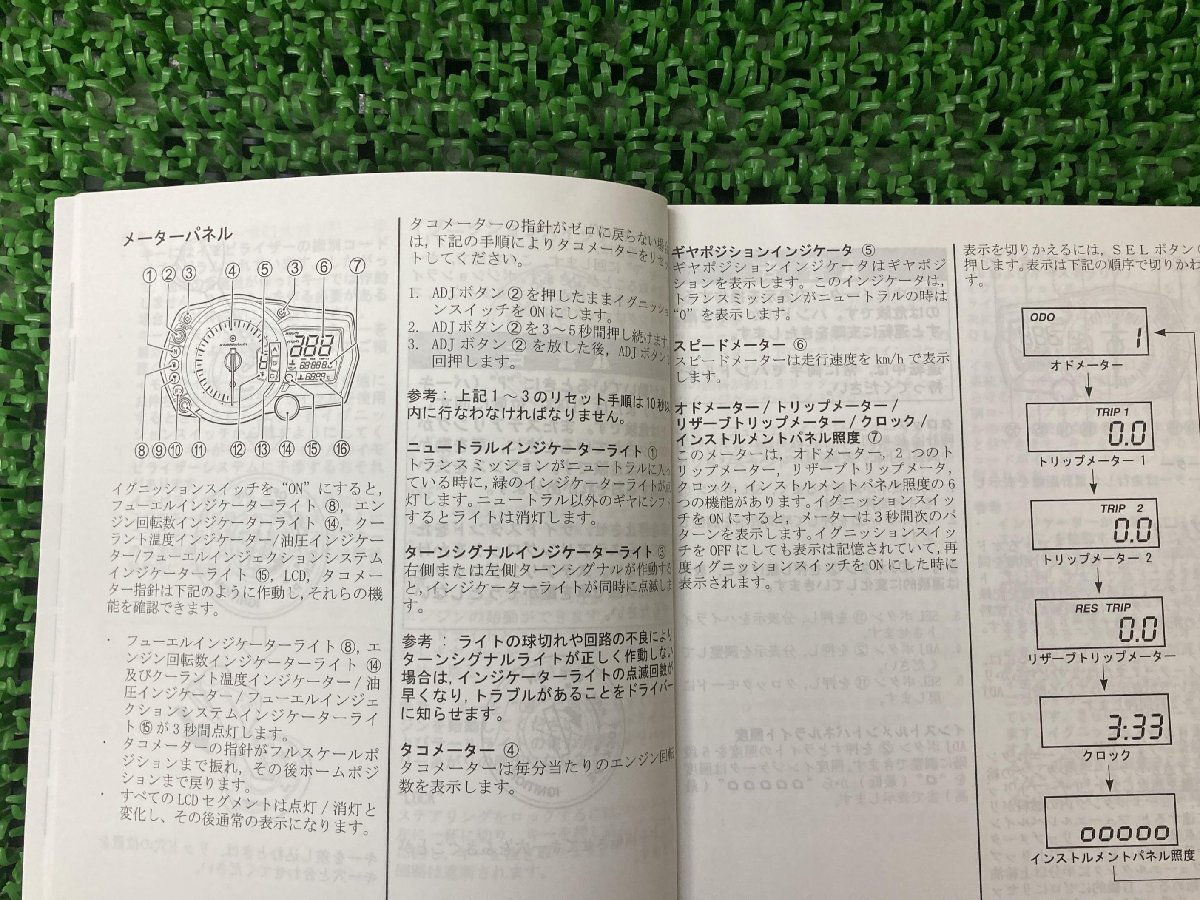 メーターパネル
① ② ③ ④ ⑤ ③ ⑥ ⑦
⑧ ⑨ ⑩ ⑪ ⑫ ⑬ ⑭ ⑮ ⑯
イグニッションスイッチを“ON”にすると,
フューエルインジケーターライト ⑧, エン
ジン回転数インジケーターライト ⑭, クー
ラント温度インジケーター/油圧インジケー
ター/フューエルインジェクションシステム
インジケーターライト ⑮, LCD, タコメー
ター指針は下記のように作動し, それらの機
能を確認できます。
・ フューエルインジケーターライト ⑧, エ
ンジン回転数インジケーターライト ⑭
及びクーラント温度インジケーター/油
圧インジケーター/フューエルインジェ
クションシステムインジケーターライ
ト ⑮ が3秒間点灯します。
・ タコメーターの指針がフルスケールポ
ジションまで振れ, その後ホームポジ
ションまで戻ります。
・ すべてのLCDセグメントは点灯/消灯と
変化し, その後通常の表示になります。
タコメーターの指針がゼロに戻らない場合
は, 下記の手順によりタコメーターをリセッ
トしてください。
1. ADJボタン ② を押したままイグニッショ
ンスイッチをONにします。
2. ADJボタン ② を3~5秒間押し続けます
3. ADJボタン ② を放した後, ADJボタン
回押します。
参考: 上記1~3のリセット手順は10秒以
内に行なわなければなりません。
ニュートラルインジケーターライト ①
トランスミッションがニュートラルに入っ
ている時に, 緑のインジケーターライトが点
灯します。ニュートラル以外のギヤにシフト
するとライトは消灯します。
ターンシグナルインジケーターライト ③
右側または左側ターンシグナルが作動する
と, インジケーターライトが同時に点滅しま
す。
参考: ライトの球切れや回路の不良により
ターンシグナルライトが正しく作動しない
場合は, インジケーターライトの点滅回数が
早くなり, トラブルがあることをドライバー
に知らせます。
タコメーター ④
タコメーターは毎分当たりのエンジン回転
数を表示します。
ギヤポジションインジケータ ⑤
ギヤポジションインジケータはギヤポジ
ションを表示します。このインジケータは,
トランスミッションがニュートラルの時は
“0”を表示します。
スピードメーター ⑥
スピードメーターは走行速度を km/h で表示
します。
オドメーター/トリップメーター/
リザーブトリップメーター/クロック/
インストルメントパネル照度 ⑦
このメーターは, オドメーター, 2つのト
リップメーター, リザーブトリップメータ,
クロック, インストルメントパネル照度の6
つの機能があります。イグニッションスイッ
チをONにすると, メーターは3秒間次のパ
ターンを表示します。イグニッションスイッ
チをOFFにしても表示は記憶されていて, 再
度イグニッションスイッチをONにした時に
表示されます。
表示を切りかえるには, SELボタン
押します。表示は下記の順序で切りかわ
す。
ODO
1
オドメーター
TRIP 1
0.0
トリップメーター 1
TRIP 2
0.0
トリップメーター 2
RES TRIP
0.0
リザーブトリップメーター
3:33
クロック
ooooo
インストルメントパネル照度